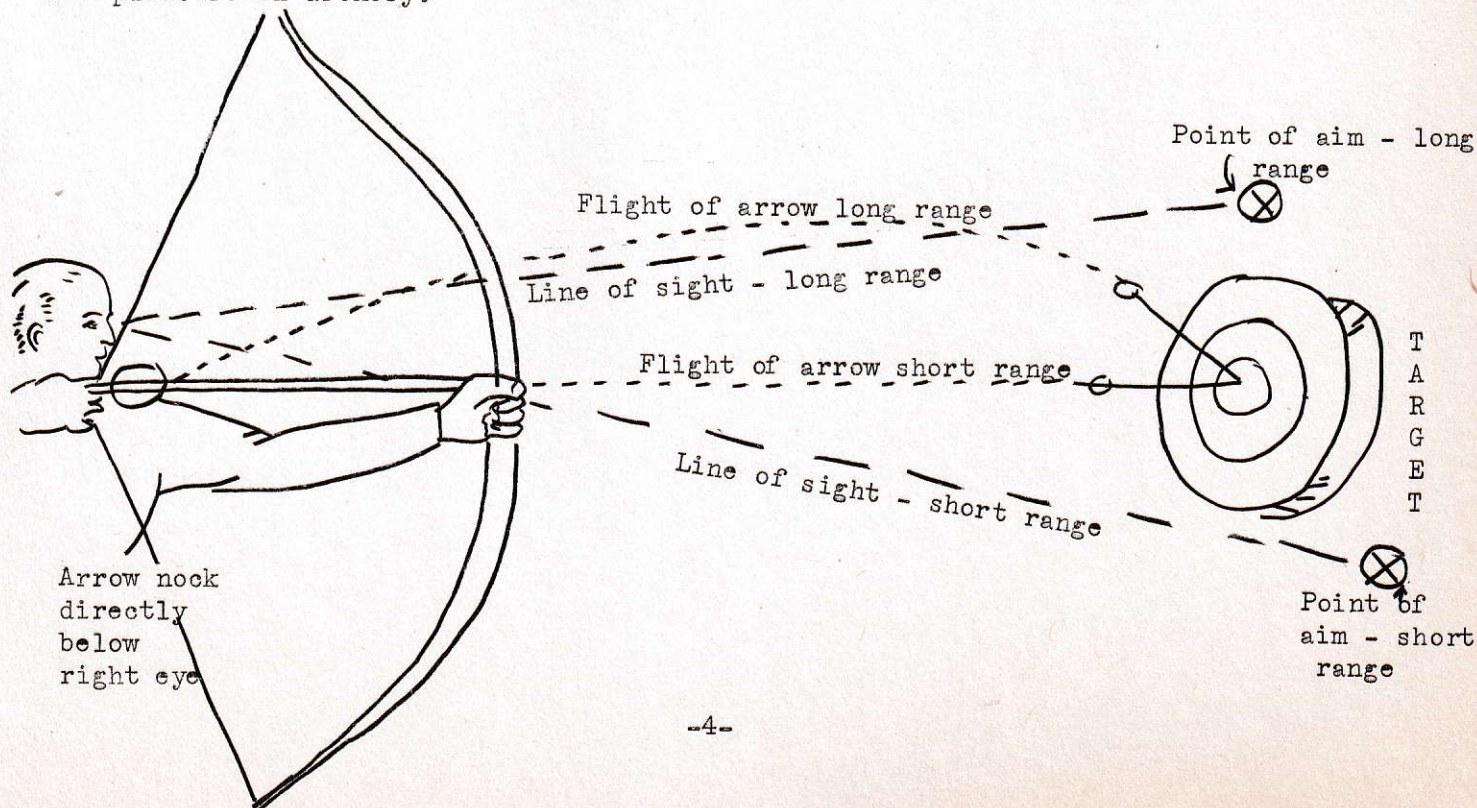 Point of aim - long
range
Flight of arrow long range
Line of sight - long range
Flight of arrow short range
T
A
R
G
E
T
Line of sight - short range
Arrow nock
directly
below
right eye
Point of
aim - short
range
-4-